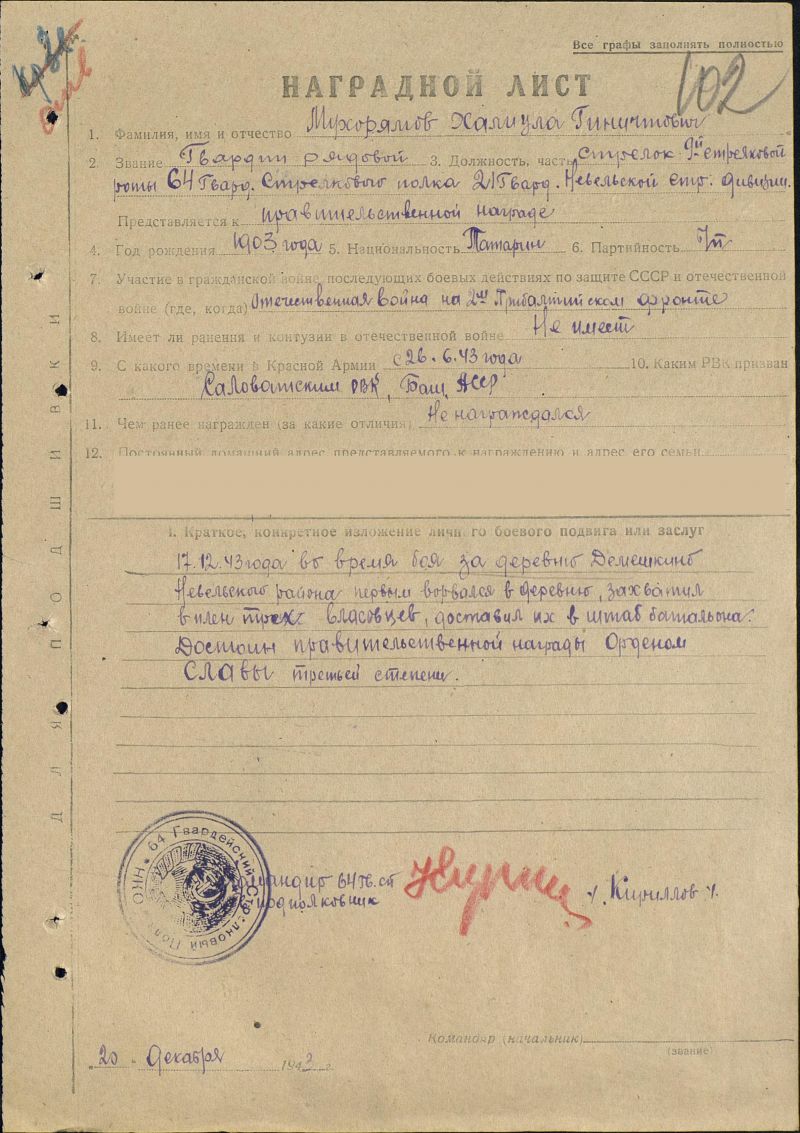 Все графы заполнять полностью
102
НАГРАДНОЙ ЛИСТ
1. Фамилия, имя и отчество Мухорямов Халиула Гиничтович
2. Звание Гвардии рядовой 3. Должность, часть стрелок 9й стрелковой
роты 64 Гвард. Стрелкового полка 21 Гвард. Невельской стр. дивизии.
Представляется к правительственной награде
4. Год рождения 1903 года 5. Национальность Татарин 6. Партийность
7. Участие в гражданской войне, последующих боевых действиях по защите СССР и отечественной
войне (где, когда) Отечественная война на 2ом Прибалтийском фронте
8. Имеет ли ранения и контузии в отечественной войне Не имеет
9. С какого времени в Красной Армии с 26.6.43 года 10. Каким РВК призван
Саловатским РВК, Баш. АССР
11. Чем ранее награжден (за какие отличия) Не награждался
12. Постоянный домашний адрес представляемого к награждению и адрес его семьи
I. Краткое, конкретное изложение личного боевого подвига или заслуг
17.12.43 года во время боя за деревню Демешкино
Невельского района первым ворвался в деревню, захватил
в плен трех власовцев, доставил их в штаб батальона.
Достоин правительственной награды Орденом
СЛАВЫ третьей степени.
НКО * 64 Гвардейский Стрелковый Полк
Командир 64 гв. сп
подполковник
/. Кириллов /.
Командир (начальник)
(звание)
„20 декабря 1943 г.
ДЛЯ ПОДШИВКИ